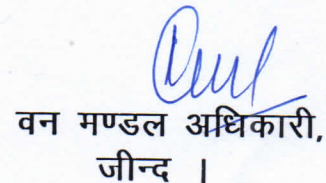 वन मण्डल अधिकारी,
जीन्द ।